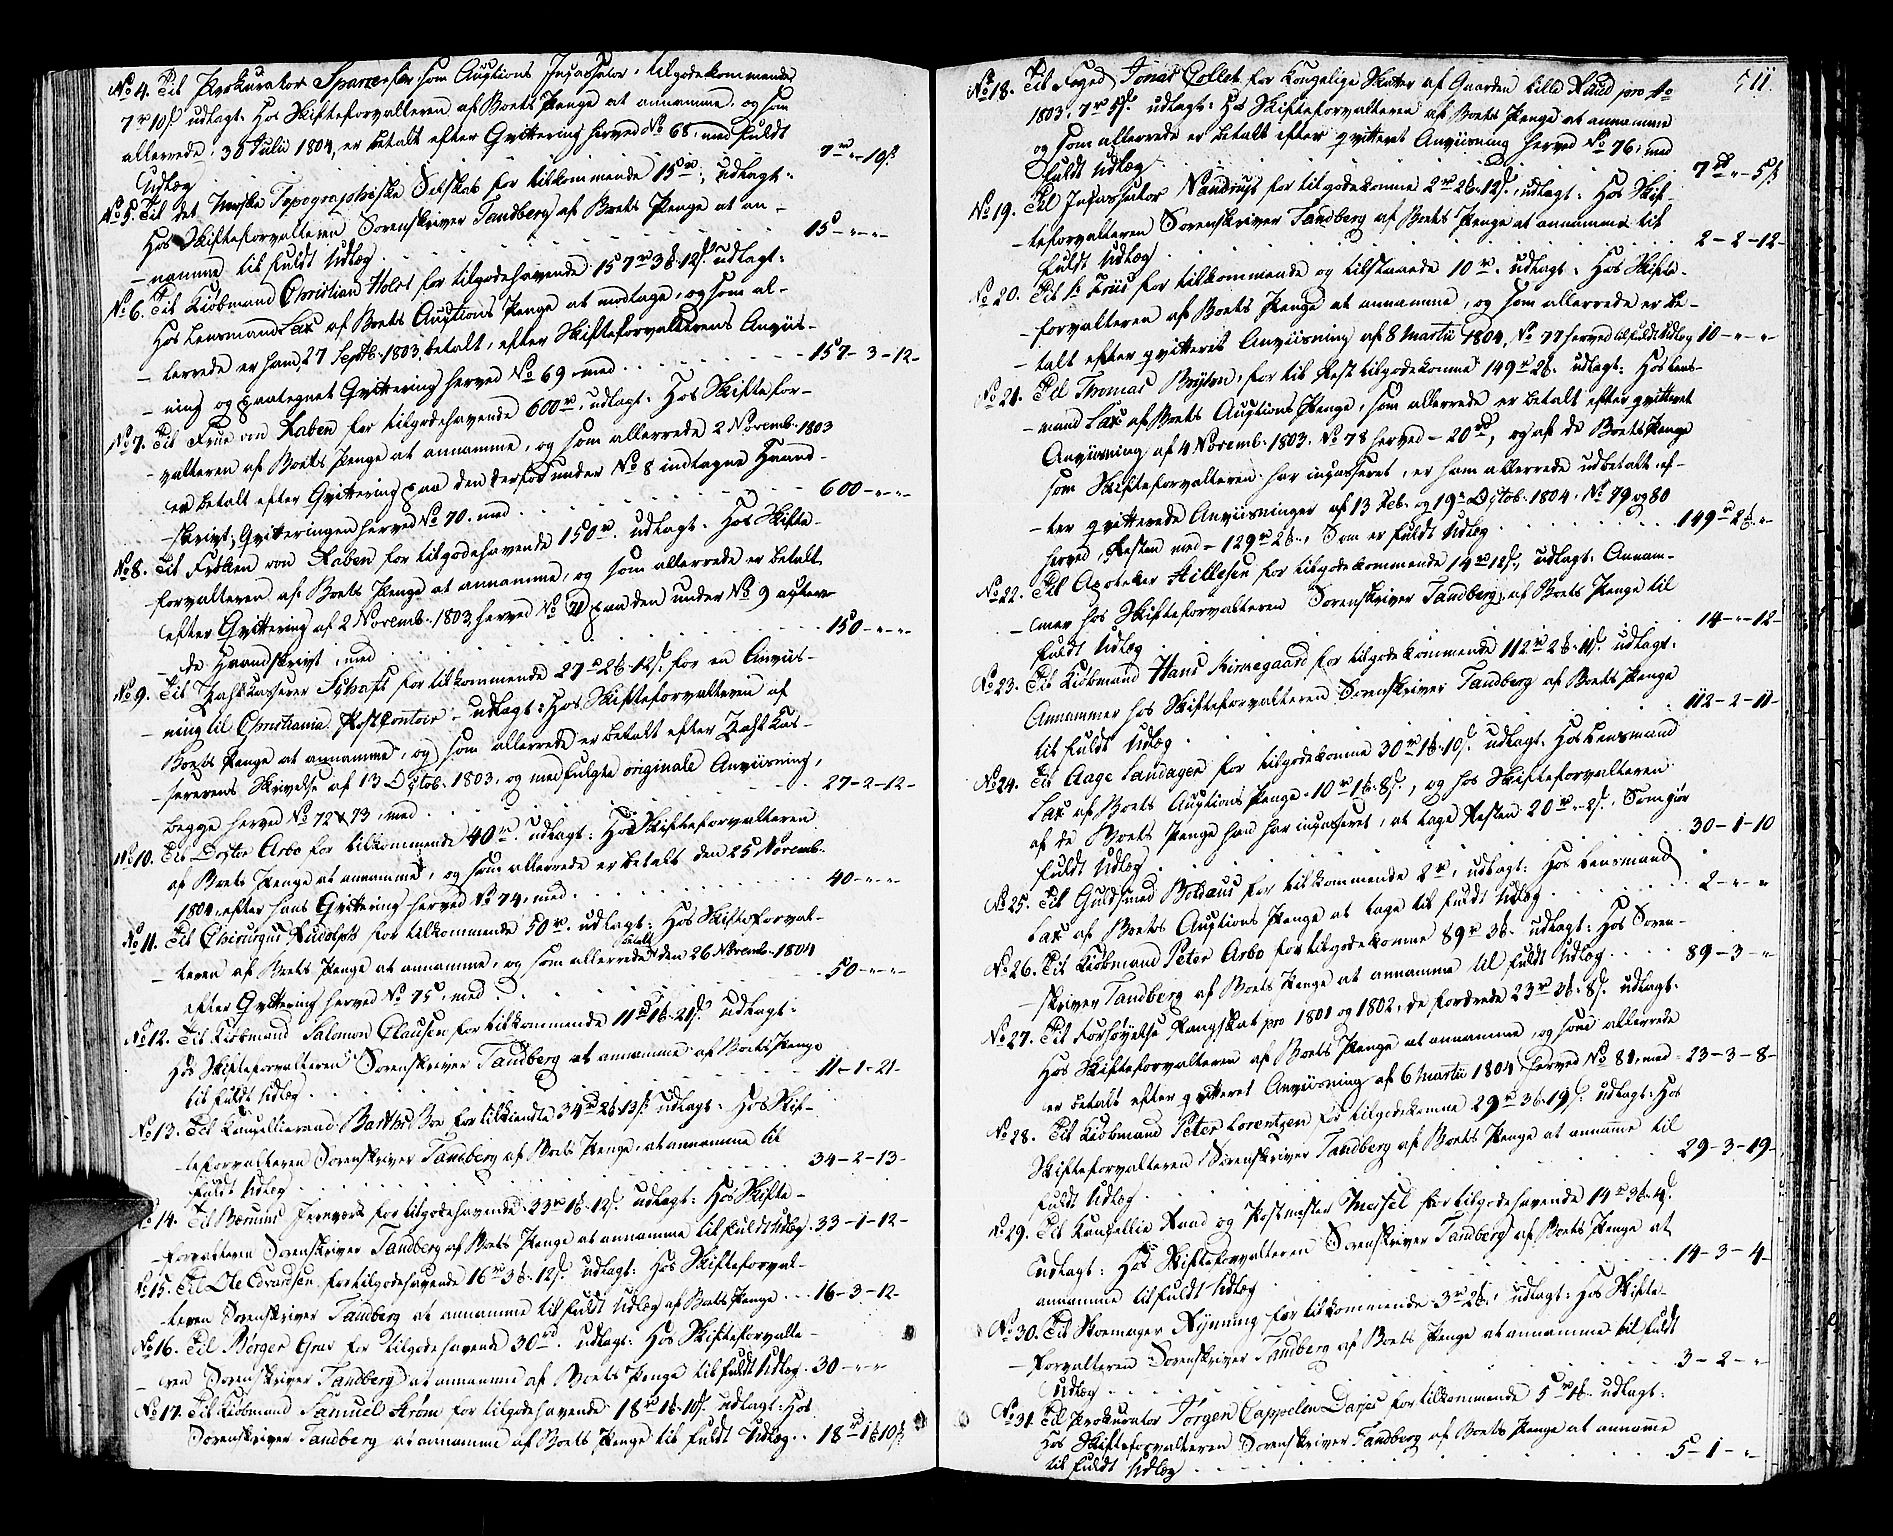 No 4. Til Prokurator Sparre for som Auctions Incassator, tilgodekommende
7rd 10s udlagt: Hos Skifteforvalteren af Boets Penge at annamme, og som
allerrede, 30 Julii 1804, er betalt efter Qvittering herved No 68, med fuldt
Udlæg 7rd - " - 10s
No 5. Til det Norske Topographiske Selskab for tilkommende 15rd, udlagt:
Hos Skifteforvalteren Sorenskriver Tandberg af Boets Penge at an-
-namme til fuldt Udlæg 15 - " - "
No 6. Til Kiøbmand Christian Holst for tilgodehavende 157rd 3 12s udlagt:
Hos Lensmand Lax af Boets Auctions Penge at modtage, og som al-
-lerrede er ham 27 Septb. 1803, betalt, efter Skifteforvalterens Anviis-
-ning og paategnet Qvittering herved No 69, med 157 - 3 - 12
No 7. Til Frue von Raben for tilgodehavende 600rd, udlagt: Hos Skiftefor-
-valteren af Boets Penge at annamme, og som allerrede 2 Novemb. 1803
er betalt efter Qvittering paa den derfor under No 8 indtagne Haand-
-skrivt; Qvitteringen herved No 70, med 600 - " - "
No 8. Til Frøken von Raben for tilgodehavende 150rd. udlagt: Hos Skifte-
-forvalteren af Boets Penge at annamme, og som allerrede er betalt
efter Qvittering af 2 Novemb. 1803, herved No 71 paa den under No 9 acterede
Haandskrivt, med 150 - " - "
No 9. Til Zahlkasserer Schafft for tilkommende 27rd 2 12s for en Anviis-
-ning til Christiania Postcontoir - udlagt: Hos Skifteforvalteren af
Boets Penge at annamme, og som allerrede er betalt efter Zahlkas-
-sererens Skrivelse af 13 Octob. 1803, og medfulgte originale Anviisning,
begge herved No 72 & 73, med 27 - 2 - 12
No 10. Til Doctor Arbo for tilkommende 40rd. udlagt: Hos Skifteforvalteren
af Boets Penge at annamme, og som allerrede er betalt den 25 Novemb.
1804, efter hans Qvittering herved No 74, med 40 - " - "
No 11. Til Chirurgus Rudolph for tilkommende 50rd. udlagt: Hos Skifteforval-
-teren af Boets Penge at annamme, og som allerrede betalt den 26 Novemb. 1804
efter Qvittering herved No 75, med 50 - " - "
No 12. Til Kiøbmand Salomon Clausen for tilkommende 11rd 1 21s udlagt:
Hos Skifteforvalteren Sorenskriver Tandberg at annamme af Boets Penge
til fuldt Udlæg 11 - 1 - 21
No 13. Til Kancellieraad Barth Boe for tilkiendte 34rd 2 13s udlagt: Hos Skif-
-teforvalteren Sorenskriver Tandberg af Boets Penge, at annamme til
fuldt Udlæg 34 - 2 - 13
No 14. Til Bærums Jernverk for tilgodehavende 33rd 1 12s. udlagt: Hos Skifte-
-forvalteren Sorenskriver Tandberg af Boets Penge at annamme til fuldt Udlæg 33 - 1 - 12
No 15. Til Ole Edvardsen for tilgodehavende 16rd 3 12s. udlagt: Hos Skifteforval-
-teren Sorenskriver Tandberg at annamme til fuldt Udlæg af Boets Penge 16 - 3 - 12
No 16. Til Børger Grav for tilgodehavende 30rd. udlagt: Hos Skifteforvalte-
-ren Sorenskriver Tandberg at annamme af Boets Penge til fuldt Udlæg 30 - " - "
No 17. Til Kiøbmand Samuel Krøm for tilgodehavende 18rd 1 10s. udlagt: Hos
Sorenskriver Tandberg at annamme af Boets Penge til fuldt Udlæg 18rd 1 10s
511.
No 18. Til Foged Jonas Collet for Kongelige Skatter af Gaarden lille Ruud pro Ao
1803, 7rd 5s. udlagt: Hos Skifteforvalteren af Boets Penge at annamme
og som allerrede er betalt efter qvitteret Anviisning herved No 76, med
fuldt Udlæg 7rd - " - 5s
No 19. Til Incassator Nandrup for tilgodekomne 2rd 2 12s, udlagt: Hos Skif-
-teforvalteren Sorenskriver Tandberg af Boets Penge at annamme til
fuldt Udlæg 2 - 2 - 12
No 20. Til Friis for tilkommende og tilstaaede 10rd. udlagt: Hos Skifte-
-forvalteren af Boets Penge at annamme, og som allerrede er be-
-talt efter qvitteret Anviisning af 8 Martii 1804, No 77 herved til fuldt Udlæg 10 - " - "
No 21. Til Thomas Bryton, for til Rest tilgodekomne 149rd 2. udlagt: Hos Lens-
-mand Lax af Boets Auctions Penge, som allerrede er betalt efter qvitteret
Anviisning af 4 Novemb. 1803. No 78 herved - 20rd, og af de Boets Penge
som Skifteforvalteren har incasseret, er ham allerrede udbetalt ef-
-ter qvitterede Anviisninger af 13 Feb. og 19 Octob. 1804. No 79 og 80
herved, Resten med - 129rd 2., Som er fuldt Udlæg 149rd 2 "
No 22. Til Apoteker Hillesen for tilgodekommende 14rd 12s, udlagt: Annam-
-mer hos Skifteforvalteren Sorenskriver Tandberg, af Boets Penge til
fuldt Udlæg 14 - " - 12
No 23. Til Kiøbmand Hans Kirnegaard for tilgodekommende 112rd 2 11s. udlagt:
Annammer hos Skifteforvalteren Sorenskriver Tandberg af Boets Penge
til fuldt Udlæg 112 - 2 - 11
No 24. Til Aage Sandager for tilgodekomne 30rd 1 10s. udlagt. Hos Lensmand
Lax af Boets Auctions Penge 10rd 1 8s, og hos Skifteforvalteren
af de Boets Penge han har incasseret, at tage Resten 20rd " 2s. Som giør
fuldt Udlæg 30 - 1 - 10
No 25. Til Guldsmed Boldaus for tilkommende 2rd, udlagt: Hos Lensmand
Lax af Boets Auctions Penge at tage til fuldt Udlæg 2 - " - "
No 26. Til Kiøbmand Peter Arbo for tilgodekomne 89rd 3. udlagt: Hos Soren-
-skriver Tandberg af Boets Penge at annamme til fuldt Udlæg 89 - 3 - "
No 27. Til Forhøyelse Rangskat pro 1801 og 1802, de fordrede 23rd 3 8s. udlagt:
Hos Skifteforvalteren af Boets Penge at annamme, og som allerrede
er betalt efter qvitteret Anviisning af 6 Martii 1804, herved No 81, med 23 - 3 - 8
No 28. Til Kiøbmand Peter Lorentzen for tilgodekomne 29rd 3 19s. udlagt: Hos
Skifteforvalteren Sorenskriver Tandberg af Boets Penge at annamme til
fuldt Udlæg 29 - 3 - 19
No 29. Til Kancellie Raad og Postmester Meisel for tilgodehavende 14rd 3 4s.
udlagt: Hos Skifteforvalteren Sorenskriver Tandberg af Boets Penge at
annamme til fuldt Udlæg 14 - 3 - 4
No 30. Til Skomager Rynning for tilkommende 3rd 2. udlagt: Hos Skifte-
-forvalteren Sorenskriver Tandberg af Boets Penge at annamme til fuldt
Udlæg 3 - 2 - "
No 31. Til Prokurator Jørgen Cappelen Darjes for tilkommende 5rd 1. udlagt:
Hos Skifteforvalteren Sorenskriver Tandberg af Boets Penge at annamme
til fuldt Udlæg 5 - 1 - "